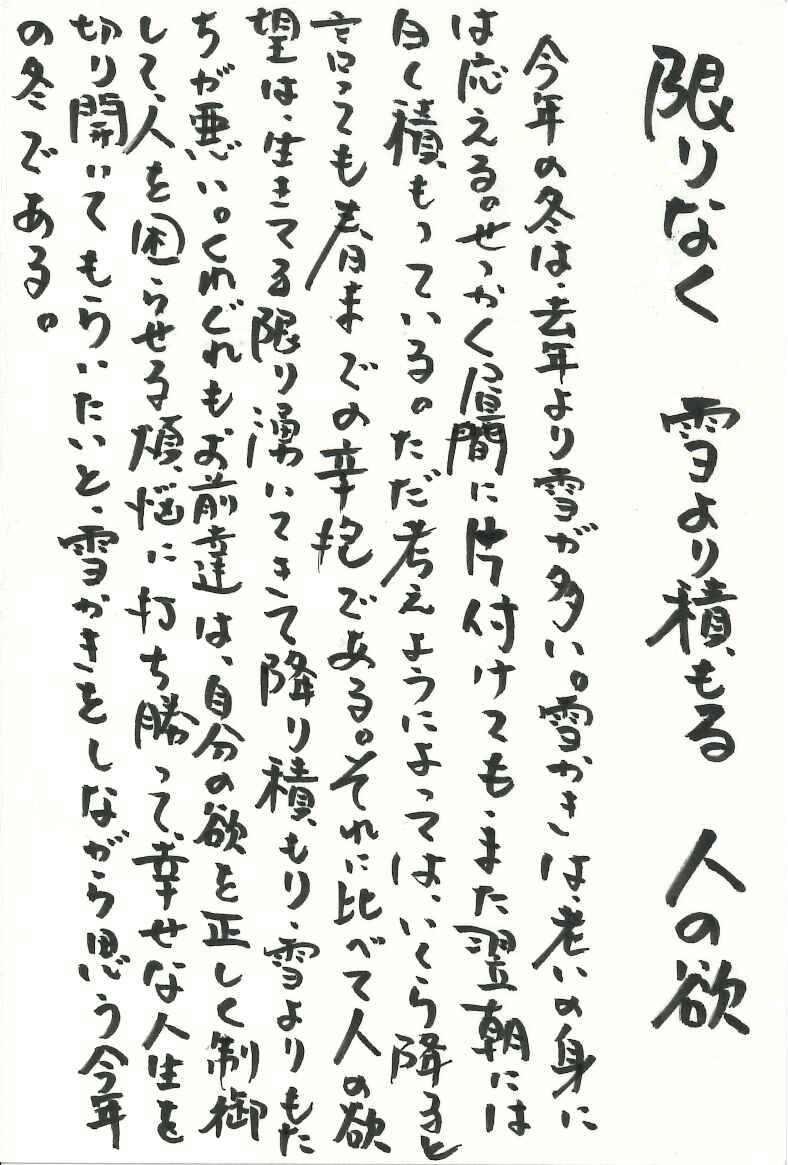 限りなく　雪より積もる　人の欲
今年の冬は、去年より雪が多い。雪かきは、老いの身に
は応える。せっかく昼間に片付けても、また翌朝には
白く積もっている。ただ考えようによっては、いくら降ると
言っても春までの辛抱である。それに比べて人の欲
望は、生きてる限り湧いてきて降り積もり、雪よりもた
ちが悪い。くれぐれもお前達は、自分の欲を正しく制御
して、人を困らせる煩悩に打ち勝って、幸せな人生を
切り開いてもらいたいと、雪かきをしながら思う今年
の冬である。